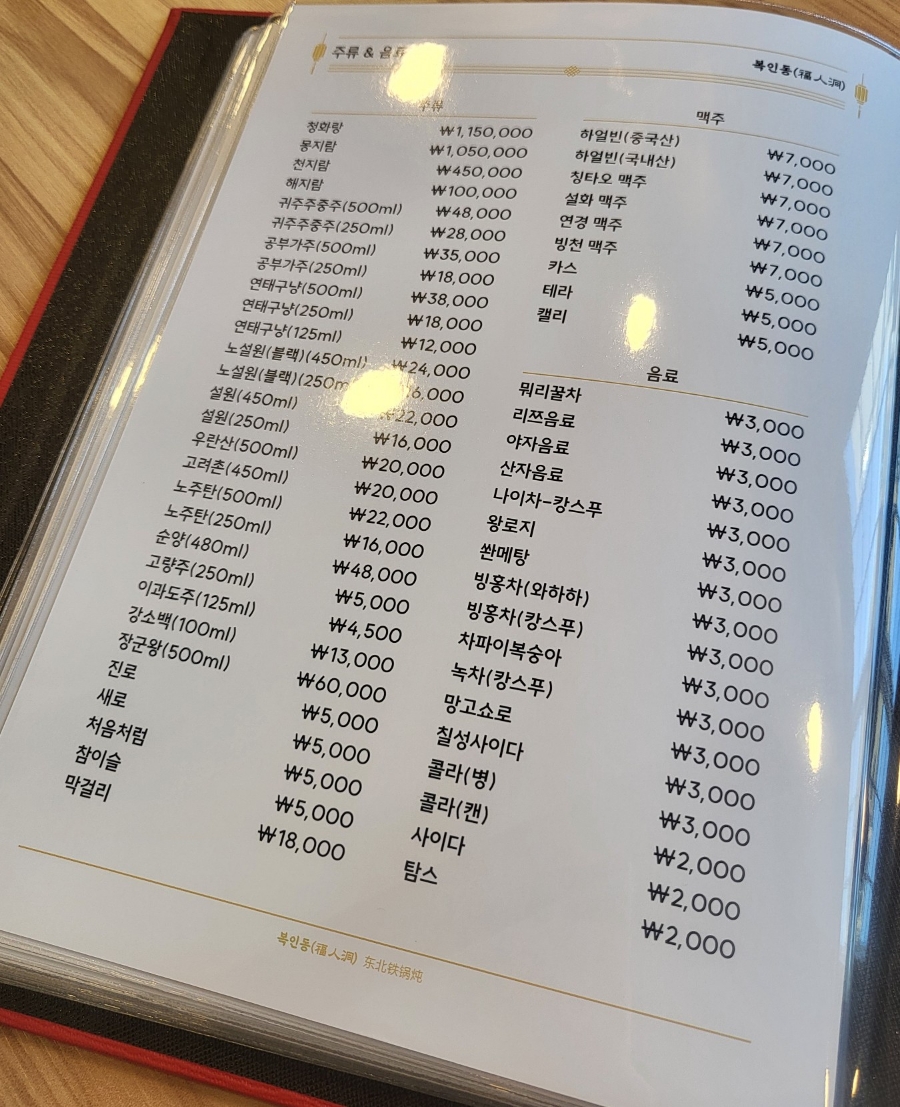 주류 & 음료
복인동(福人洞)
주류
청화랑 ₩1,150,000
몽지람 ₩1,050,000
천지람 ₩450,000
해지람 ₩100,000
귀주주중주(500ml) ₩48,000
귀주주중주(250ml) ₩28,000
공부가주(500ml) ₩35,000
공부가주(250ml) ₩18,000
연태구냥(500ml) ₩38,000
연태구냥(250ml) ₩18,000
연태구냥(125ml) ₩12,000
노설원(블랙)(450ml) ₩24,000
노설원(블랙)(250m
설원(450ml) ₩22,000
설원(250ml) ₩16,000
우란산(500ml) ₩20,000
고려촌(450ml) ₩20,000
노주탄(500ml) ₩22,000
노주탄(250ml) ₩16,000
순양(480ml) ₩48,000
고량주(250ml) ₩5,000
이과도주(125ml) ₩4,500
강소백(100ml) ₩13,000
장군왕(500ml) ₩60,000
진로 ₩5,000
새로 ₩5,000
처음처럼 ₩5,000
참이슬 ₩5,000
막걸리 ₩18,000
맥주
하얼빈(중국산) ₩7,000
하얼빈(국내산) ₩7,000
칭타오 맥주 ₩7,000
설화 맥주 ₩7,000
연경 맥주 ₩7,000
빙천 맥주 ₩7,000
카스 ₩5,000
테라 ₩5,000
캘리 ₩5,000
음료
뭐리꿀차 ₩3,000
리쯔음료 ₩3,000
야자음료 ₩3,000
산자음료 ₩3,000
나이차-캉스푸 ₩3,000
왕로지 ₩3,000
쏸메탕 ₩3,000
빙홍차(와하하) ₩3,000
빙홍차(캉스푸) ₩3,000
차파이복숭아 ₩3,000
녹차(캉스푸) ₩3,000
망고쇼로 ₩3,000
칠성사이다 ₩3,000
콜라(병) ₩3,000
콜라(캔) ₩2,000
사이다 ₩2,000
탐스 ₩2,000
복인동(福人洞) 东北铁锅炖